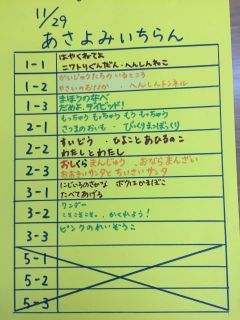 11/29
あさよみいちらん
1-1 はやくねてよ
ニワトリぐんだん・へんしんねこ
1-2 かいじゅうたちのいるところ
やさいのおなか・へんしんトンネル
1-3 まほうのなべ
だめよ、デイビッド!
2-1 もっちゅう もっちゅう もう もっちゅう
さつまのおいも・びっくりまつぼっくり
2-2 すいどう・ひよことあひるのこ
わたしとわたし
2-3 おしくらまんじゅう・おならまんざい
おおきいサンタとちいさいサンタ
3-1 にじいろのさかな ボクはかまぼこ
たべてあげる
3-2 ワンダー
こそこそこそ。かくれよう!
3-3 ピンクのれいぞうこ
5-1
5-2
5-3